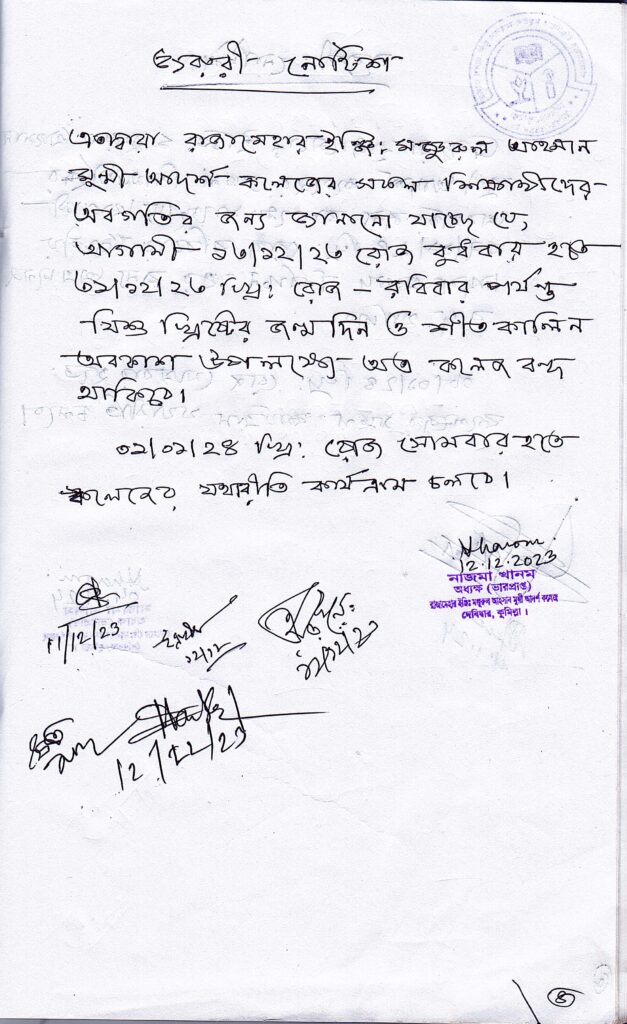 জরুরী নোটিশ
এতদ্বারা রাজামেহার ইঞ্জি: মঞ্জুরুল আহসান
মুন্সী আদর্শ কলেজের সকল শিক্ষার্থীদের
অবগতির জন্য জানানো যাচ্ছে যে,
আগামী ১৩/১২/২৩ রোজ বুধবার হতে
৩১/১২/২৩ খ্রি: রোজ - রবিবার পর্যন্ত
যিশু খ্রিষ্টের জন্মদিন ও শীতকালিন
অবকাশ উপলক্ষ্যে অত্র কলেজ বন্ধ
থাকিবে।
০১/০১/২৪ খ্রি: রোজ সোমবার হতে
কলেজের যথারীতি কার্যক্রম চলবে।
12.12.2023
নাজমা খানম
অধ্যক্ষ (ভারপ্রাপ্ত)
রাজামেহার ইঞ্জিঃ মঞ্জুরুল আহসান মুন্সী আদর্শ কলেজ
দেবিদ্বার, কুমিল্লা ।
11/12/23
12/12/23